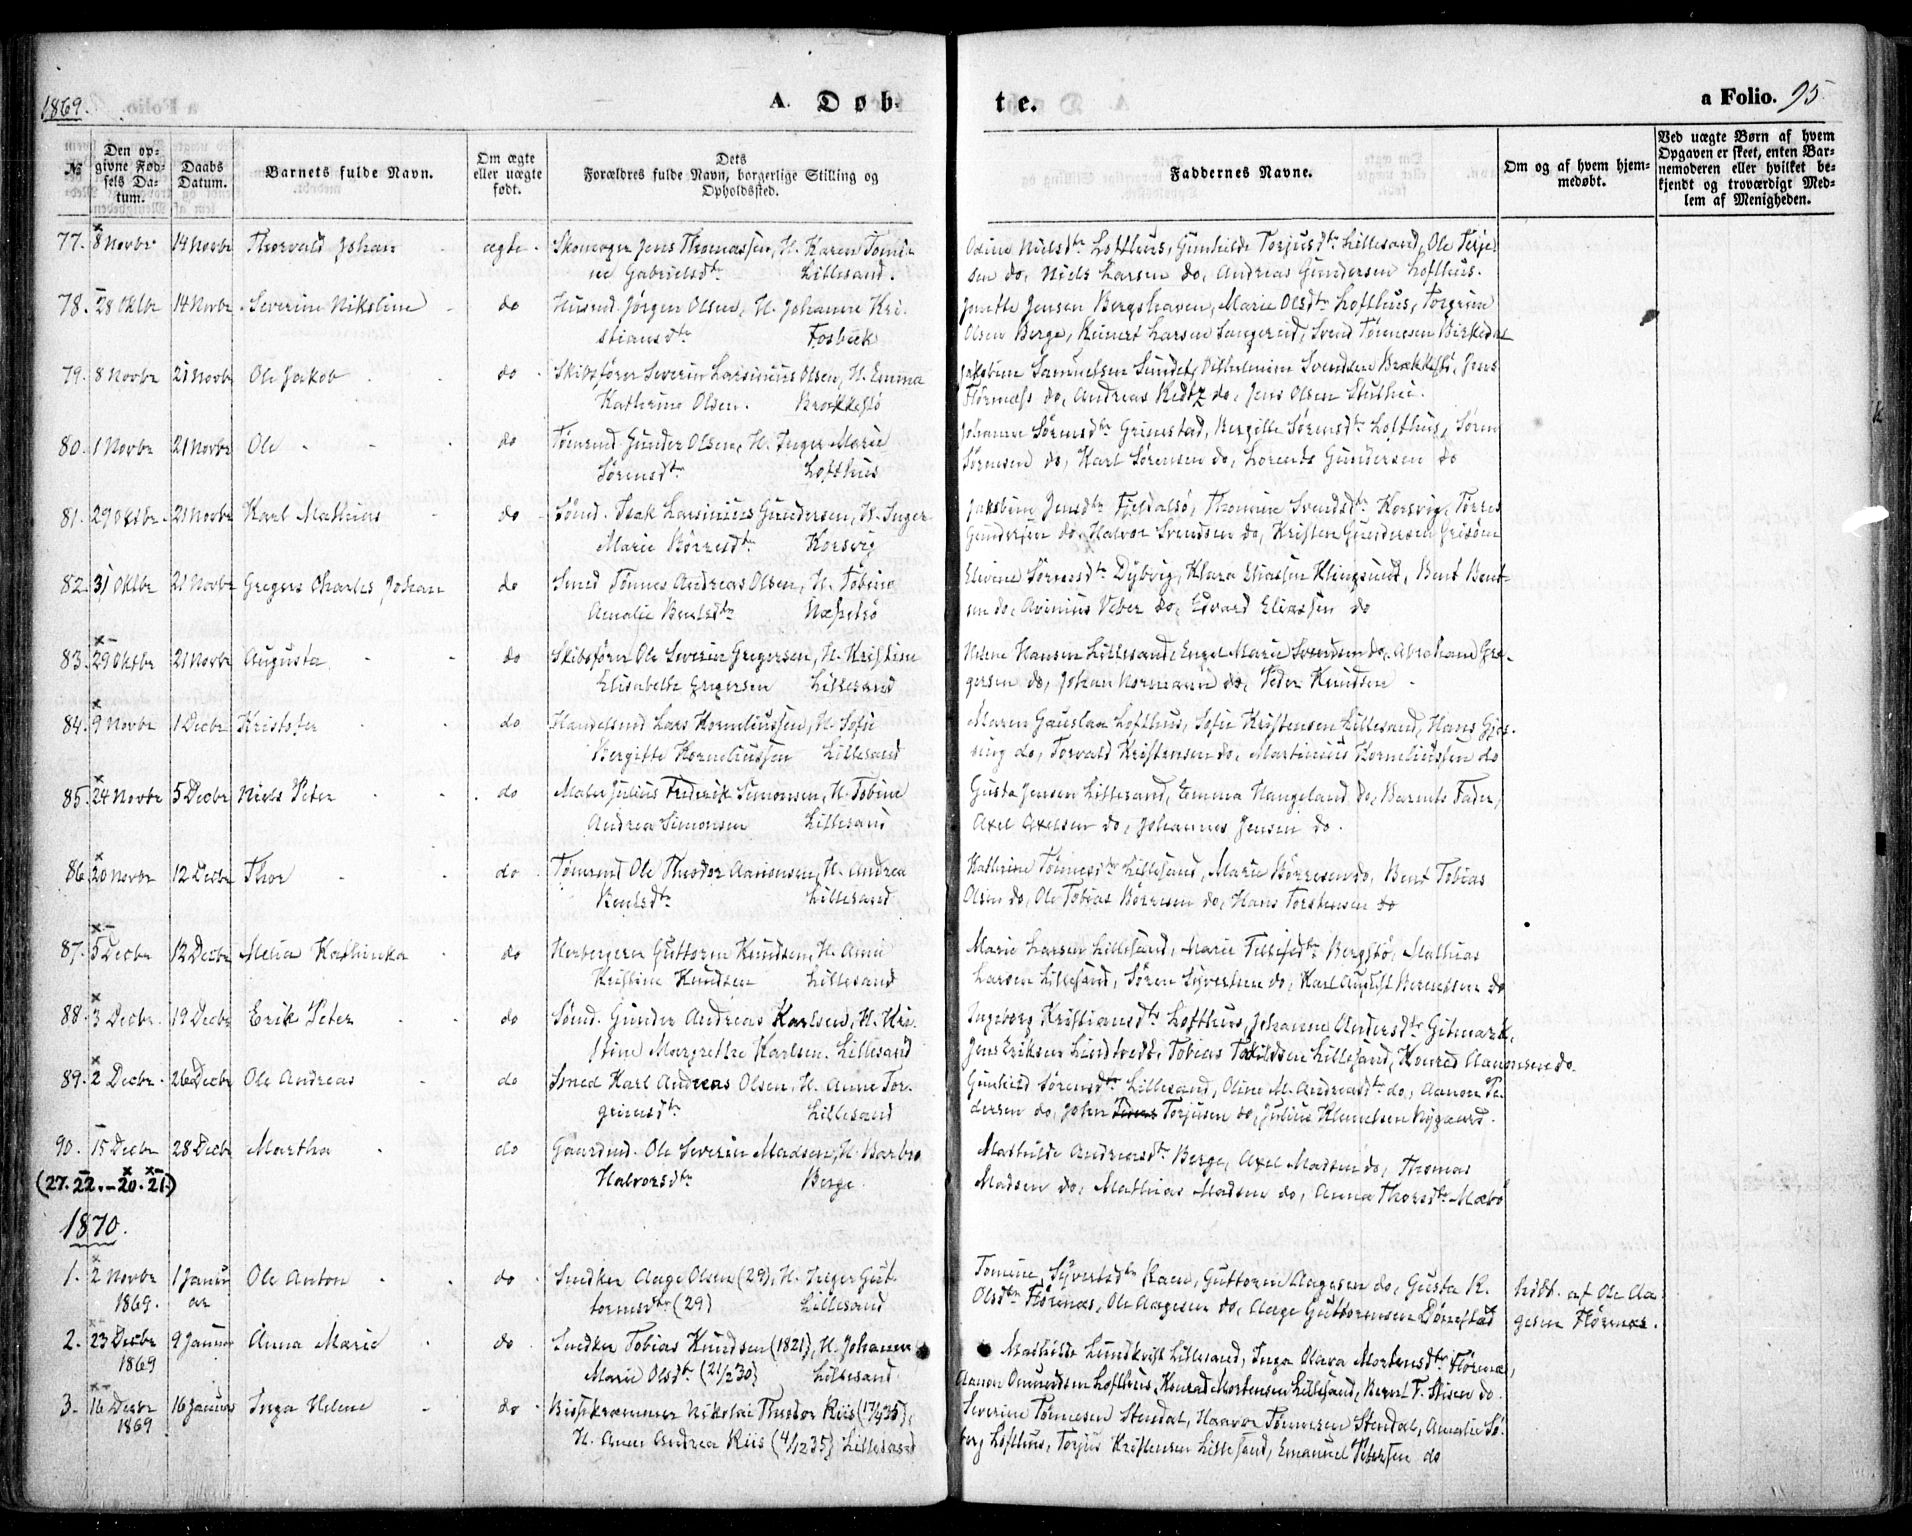 1869.
A. Døb-
te.
a Folio. 95
No
Den opgivne Fødsels Datum.
Daabs Datum.
Barnets fulde Navn.
Om ægte eller uægte født.
Dets Forældres fulde Navn, borgerlige Stilling og Opholdssted.
Faddernes Navne.
Om og af hvem hjemmedøbt.
Ved uægte Børn af hvem Opgaven er skeet, enten Barnemoderen eller hvilket bekjendt og troværdigt Medlem af Menigheden.
77. 8 Novbr 14 Novbr Thorvald Johan ægte Jens Thomassen, H. Karen Tomi-
ne Gabrielsdtr Lillesand.
Nielsdtr Lofthus, Gunhilde Torjusdtr Lillesand, Ole Terje-
sen do, Niels Larsen do, Andreas Gundersen Lofthus.
78. 28 Oktbr 14 Novbr Severine Nikoline do Husmd Jørgen Olsen, H. Johanne Kri-
stiansdtr Fosbæk
Jensen Bergshaven, Marie Olsdtr Lofthus, Torgrim
Olsen Berge, Reinert Larsen Svend Tønnesen Birkedal
79. 8 Novbr 21 Novbr Ole Jakob do Skibsfører Severin Larsinius Olsen, H. Emma
Kathrine Olsen. Brækkestø
Jakobine Samuelsen Sundet, Vilhelmine Svendsen Brækkestø, Jens
do, Andreas do, Jens Olsen
80. 1 Novbr 21 Novbr Ole do Tømrmd Gunder Olsen, H. Inger Marie
Sørensdtr Lofthus
Johanne Sørensdtr Grimstad, Bergitte Sørensdtr Lofthus, Søren
Sørensen do, Karl Sørensen do, Lorents Gundersen do
81. 29 Oktbr 21 Novbr Karl Mathias do Sømd. Isak Larsinius Gundersen, H. Inger
Marie Børresdtr Korsvig
Jakobine Jensdtr Thomine Svendsdtr Korsvig, Tørres
Gundersen do, Halvor Svendsen do, Kristen Gundersen
82. 31 Oktbr 21 Novbr Gregers Charles Johan do Smed Tønnes Andreas Olsen, H. Tobine
Amalie Bentsdtr
Elevine Sørensdtr Dybvig, Klara Eliassen Bent Bent-
sen do, Avinius Veber do, Edvard Eliassen do
83. 29 Oktbr 21 Novbr Augusta do Skibsfører Ole Severin Gregersen, H. Kristine
Elisabeth Gregersen Lillesand
Helene Hansen Lillesand, Engel Marie Svendsen do, Abraham Gre-
gersen do, Johan Normann do, Peder Knudsen
84. 9 Novbr 1 Decbr Kristofer do Handelsmd Lars Korneliussen, H. Sofie
Bergitte Korneliussen Lillesand
Maren Gauslaa Lofthus, Sofie Kristensen Lillesand, Hans
do, Torvald Kristensen do, Martinius Korneliussen do
85. 24 Novbr 5 Decbr Niels Peter do Maler Julius Frederik Simonsen, H. Tobine
Andrea Simonsen Lillesand
Gusta Jensen Lillesand, Emma Haugeland do, Barnets Fader,
Axel Axelsen do, Johannes Jensen do.
86. 20 Novbr 12 Decbr Thor do Tømrmd Ole Theodor Aanonsen, H. Andrea
Bentsdtr Lillesand
Kathrine Tønnesdtr Lillesand, Marie Børresen do, Bent Tobias
Olsen do, Ole Tobias Børresen do, Hans Torstensen do
87. 5 Decbr 12 Decbr Melia Kathinka do Herbergerer Guttorm Knudsen, H. Anne
Kristine Knudsen Lillesand
Marie Larsen Lillesand, Marie Bergstø, Mathias
Larsen Lillesand, Søren do, Karl August Berentsen do
88. 3 Decbr. 19 Decbr Erik Peter do Sømd. Gunder Andreas Karlsen, H. Kri-
stine Margrethe Karlsen. Lillesand
Ingeborg Kristiansdtr Lofthus, Johanne Andersdtr Gitmark,
Jens Eriksen Tobias Lillesand, Konrad Aanonsen do.
89. 2 Decbr. 26 Decbr Ole Andreas do Smed Karl Andreas Olsen, H. Anne Tor-
grimsdtr Lillesand
Gunhild Sørensdtr Lillesand, Oline M. Andreasdtr do, Aanon Pe-
dersen do, John Torjusen do, Julius Klemetsen Nygaard.
90. 15 Decbr 28 Decbr Martha do Gaardmd. Ole Severin Madsen, H. Barbro
Halvorsdtr Berge.
Mathilde Andreasdtr Berge, Axel Madsen do, Thomas
Madsen do, Mathias Madsen do, Anna Thorsdtr Mæbø
(27. 22. - 20. 21.)
1870.
1. 2 Novbr 1869. 1 Januar Ole Anton do Snedker Aage Olsen (29), H. Inger Gut-
tormsdtr (29) Lillesand
Tomine Syvertsdtr Kaen, Guttorm Aagesen do, Gusta K.
Olsdtr Flørenæs, Ole Aagesen do, Aage Guttormsen Dønnestad
hdbt. af Ole Aa-
gesen Flørenæs.
2. 23 Decbr 1869 9 Januar Anna Marie do Snedker Tobias Knudsen (1821), H. Johanne
Marie Olsdtr (21/2 30) Lillesand
Mathilde Lundkvist Lillesand, Inga Olava Mortensdtr Flørenæs,
Aanon Omundsen Lofthus, Konrad Mortensen Lillesand, Bernt F. do.
3. 16 Decbr 1869 16 Januar Inga Helene do Nikolai Theodor Riis (17/4 35),
H. Anne Andrea Riis (4/12 35) Lillesand
Severine Tønnesen Stendal, Haavor Tønnesen Stendal, Amalie Sø-
berg Lofthus, Torjus Kristensen Lillesand, Emanuel Petersen do